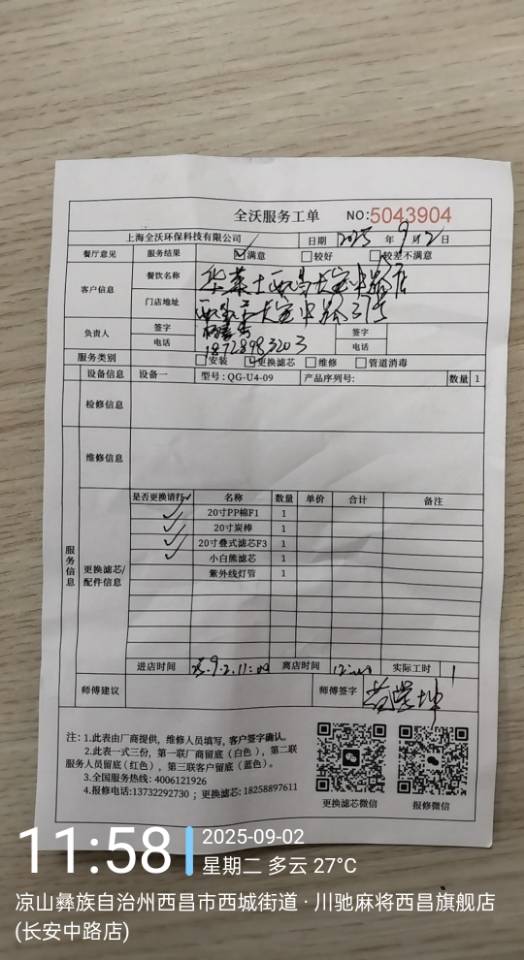 全沃服务工单 NO:5043904
上海全沃环保科技有限公司 日期 2025 年 9 月 2 日
餐厅意见 服务结果 ☑满意 □较好 □较差不满意
客户信息 餐饮名称 华莱士西昌长安中路店
门店地址 西昌市长安中路37号
负责人 签字 签字
电话 18728983203 电话
服务类别 □安装 ☑更换滤芯 □维修 □管道消毒
设备信息 设备一 型号:QG-U4-09 产品序列号: 数量 1
检修信息
维修信息
服务信息
更换滤芯/配件信息
是否更换请打✓ 名称 数量 单价 合计 备注
✓ 20寸PP棉F1 1
✓ 20寸炭棒 1
✓ 20寸叠式滤芯F3 1
✓ 小白熊滤芯 1
紫外线灯管 1
进店时间 25.9.2.11:00 离店时间 12:00 实际工时 1
师傅建议 师傅签字
注:1.此表由厂商提供,维修人员填写,客户签字确认。
2.此表一式三份,第一联厂商留底(白色),第二联
服务人员留底(红色),第三联客户留底(蓝色)。
3.全国服务热线:4006121926
4.报修电话:13732292730;更换滤芯:18258897611
更换滤芯微信 报修微信
11:58 2025-09-02
星期二 多云 27°C
凉山彝族自治州西昌市西城街道·川驰麻将西昌旗舰店
(长安中路店)